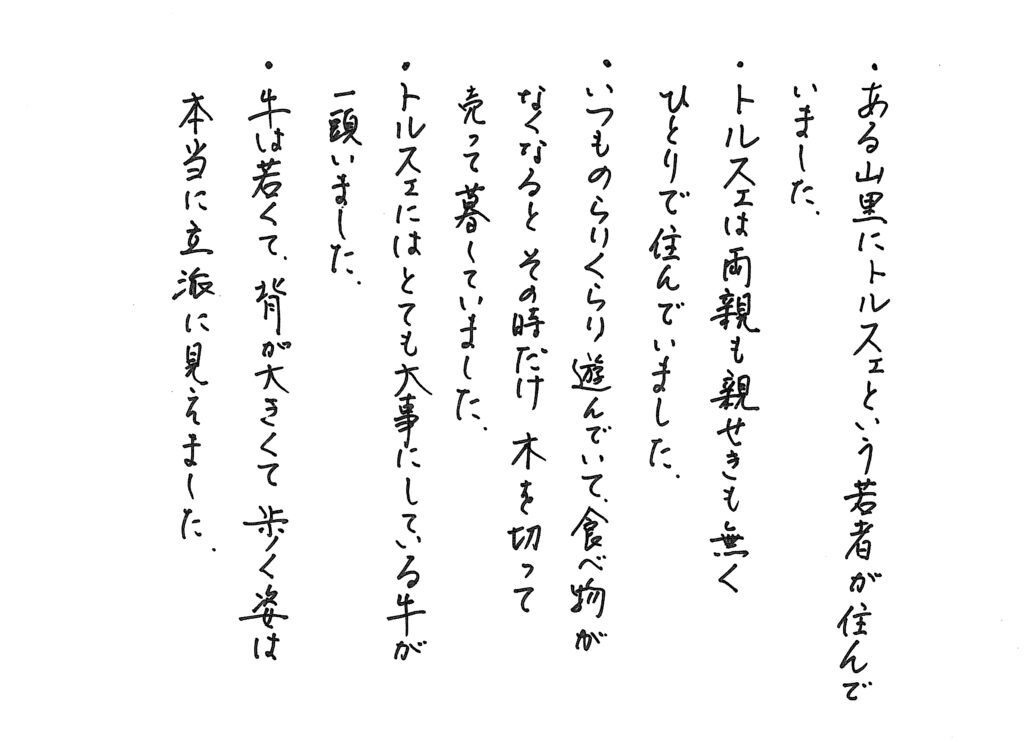 ・ある山里にトルスェという若者が住んで
いました.
・トルスェは両親も親せきも無く
ひとりで住んでいました.
・いつものらりくらり遊んでいて、食べ物が
なくなると その時だけ 木を切って
売って暮していました.
・トルスェにはとても大事にしている牛が
一頭いました.
・牛は若くて、背が大きくて 歩く姿は
本当に立派に見えました.